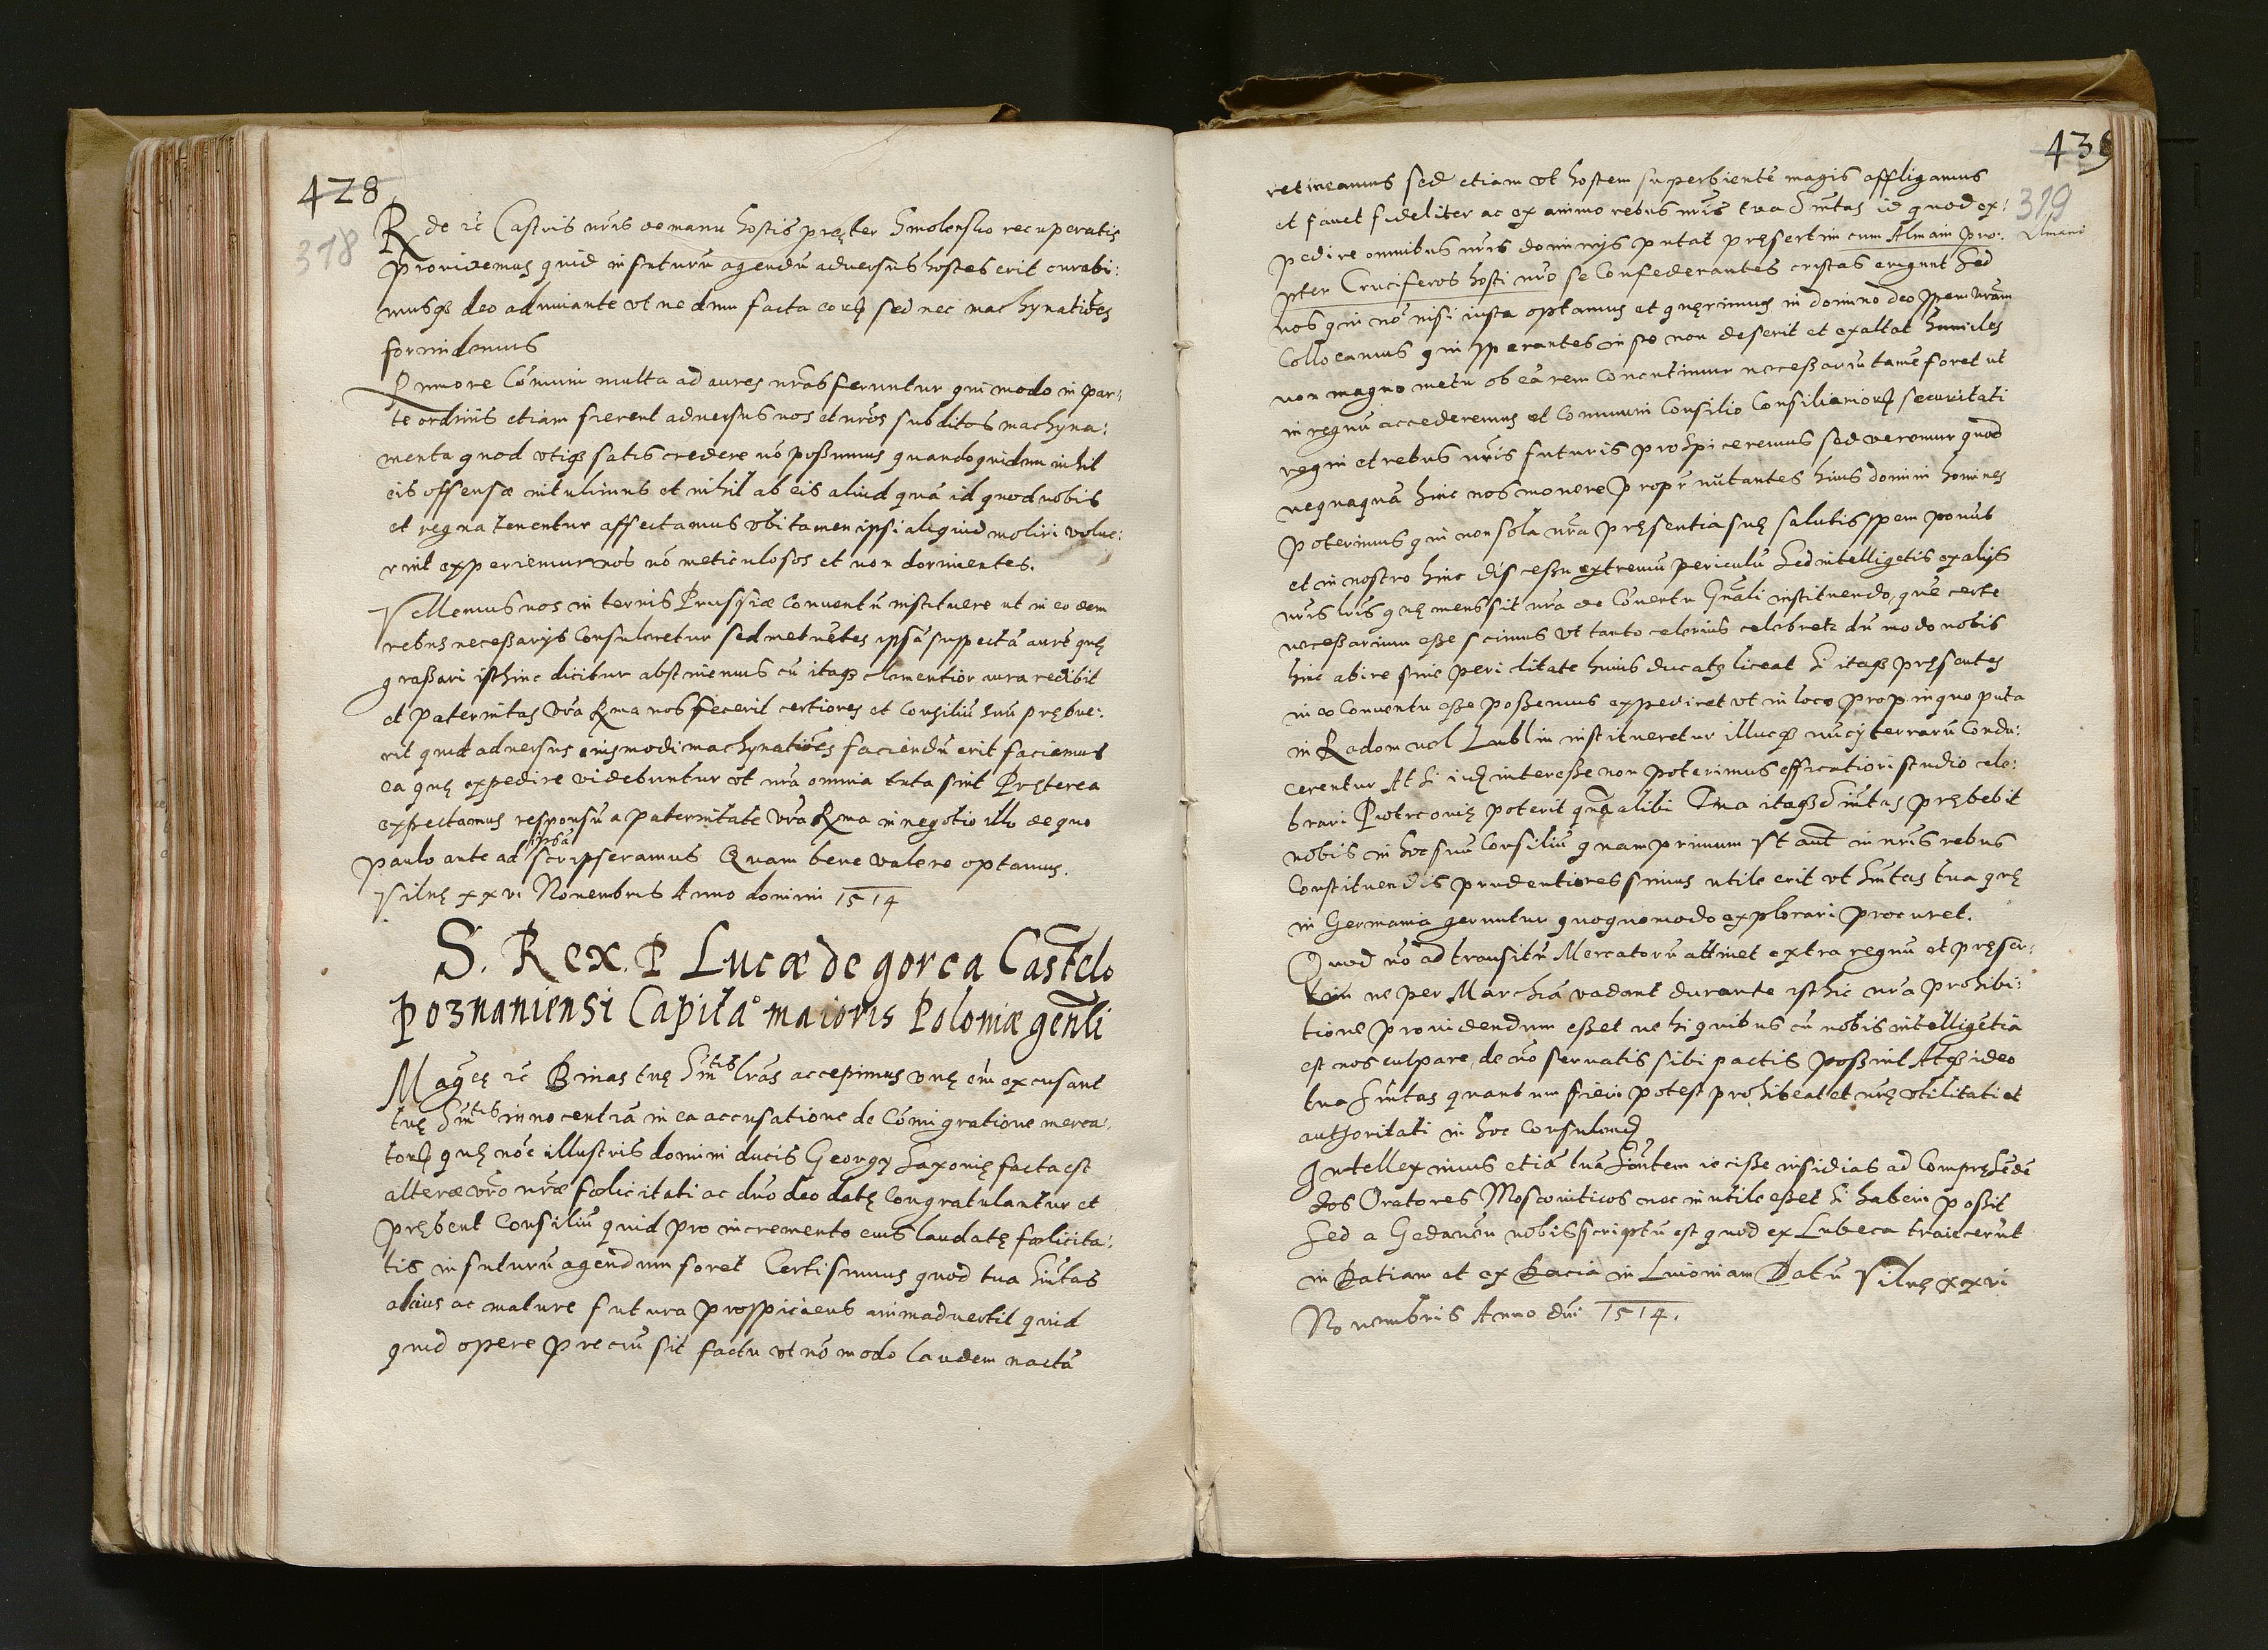 428
378
Rde ꝛc Castris nr̃is de manu hostis pręter Smolensko recuperatis
prouidemus quid in futurũ agendũ aduersus hostes erit curabi:
musqȝ deo adiuuante vt ne dum facta eorꝝ sed nec machynatiões
formidemus
Rumore Cõmuni multa ad aures nr̃as feruntur qui modo in par:
te ordinis etiam fierent aduersus nos et nr̃os subditos machyna:
menta quod vtiqȝ satis credere nõ possumus quandoquidem nihil
eis offensæ intulimus et nihil ab eis aliud quã id quod nobis
et regna tenentur affectamus vbi tamen ipsi aliquid moliri volue:
rint experiemur nos nõ meticulosos et non dormientes.
Vellemus nos in terris Prussiæ Conuentũ instituere ut in eodem
rebus necessarijs Consuleretur sed metuẽtes ipsã suspectã aurã quę
grassari isthinc dicitur abstinemus cũ itaqȝ clementior aura redibit
et paternitas vr̃a Rma nos fecerit certiores et Consiliũ suũ prębue:
rit quid aduersus eiusmodi machynatiões faciendũ erit faciemus
ea quę expedire videbuntur vt nr̃a omnia tuta sint Pręterea
expectamus responsũ a paternitate vr̃a Rma in negotio illo de quo
paulo ante ad ipsã scripseramus Quam bene valere optamus.
Vilnę xxvi Nouembris Anno domini 1514
S. Rex. P Lucæ de gorca Castelo
Poznaniensi Capitã° maioris Poloniæ gen̄li
Magcę ꝛc Binas tuę Sintis lr̃as accepimus vnę em̃ excusant
tuę Sintis innocentiã in ea accusatione de Cõmigratione merca:
torꝝ quę nõĩe illustris domini ducis Georgy Saxonię facta est
alteræ vr̃o nr̃æ fœlicitati ac dño deo datę Congratulantur et
prębent Consiliũ quid pro incremento eius laudatę fœlicita:
tis in futurũ agendum foret Certi sumus quod tua Sintas
altius ac mature futura prospiciens animaduertit quid
quid opere preciũ sit factu vt nõ modo laudem nactã
439
379
retineamus sed etiam vt hostem superbientẽ magis affligamus
et fauet fideliter ac ex animo rebus nr̃is tua Sintas id quod ex:
pedire omnibus nr̃is dominijs putat pręsertim cum Almani pro:
Almani
pter Cruciferos hosti nr̃o se Confederantes cristas erigunt Sed
nos qui nõ nisi iusta optamus et quęrimus in domino deo spem nr̃am
Collocamus qui sperantes in se non deserit et exaltat humiles
non magno metu ob eã rem Concutimur necessariũ tamẽ foret ut
in regnũ accederemus et Communi Consilio Consiliariorꝝ securitati
regni et rebus nr̃is futuris prospiceremus sed veremur quod
nequaquã hinc nos mouere propr̃ nutantes huius dominij homines
poterimus qui non sola nr̃a pręsentia suę salutis spem ponũt
et in nostro hinc discessu extremũ periculũ Sed intelligetis ex alijs
nr̃is lr̃is quę mens sit nr̃a de Cõuentu Gnãli instituendo, quẽ certe
necessarium esse scimus vt tanto celerius celebretꝛ dũ modo nobis
hinc abire sine periclitate huius ducatꝯ liceat Si itaqȝ pręsentes
in eo Conuentu esse possemus expediret vt in loco propinquo puta
in Radom uel Lublin institueretur illucqȝ nũcij terrarũ Condu:
cerentur At si iꝝ interesse non poterimus efficatiori studio cele:
brari Piotrcouię poterit quã alibi Tua itaqȝ Sintas prębebit
nobis in hoc suũ Consiliũ quam primum Vt aut̃ in nr̃is rebus
Constituendis prudentiores simus utile erit vt Sintas tua quę
in Germania geruntur quoquomodo explorari procuret.
Quod ṽo ad transitũ Mercatorũ attinet extra regnũ et pręser:
tim ne per Marchiã vadant durante isthic nr̃a prohibi:
tione prouidendum esset ne hi quibus cũ nobis intelligẽtia
est nos culpare, de nõ seruatis sibi pactis possint Atqȝ ideo
tua Sintas quantum fieri potest prohibeat et nr̃ę vtilitati et
authoritati in hoc Consulendꝝ
Intelleximus etiã tuã Sintem iecisse insidias ad Compręhẽdẽ
dos Oratores Moscouiticos nec inutile esset si haberi possit
Sed a Gedanẽn nobis scriptũ est quod ex Lubeca traiecerũt
in Datiam et ex Dacia in Liuoniam Datũ Vilnę xxvi
Nouembris Anno dñi 1514.